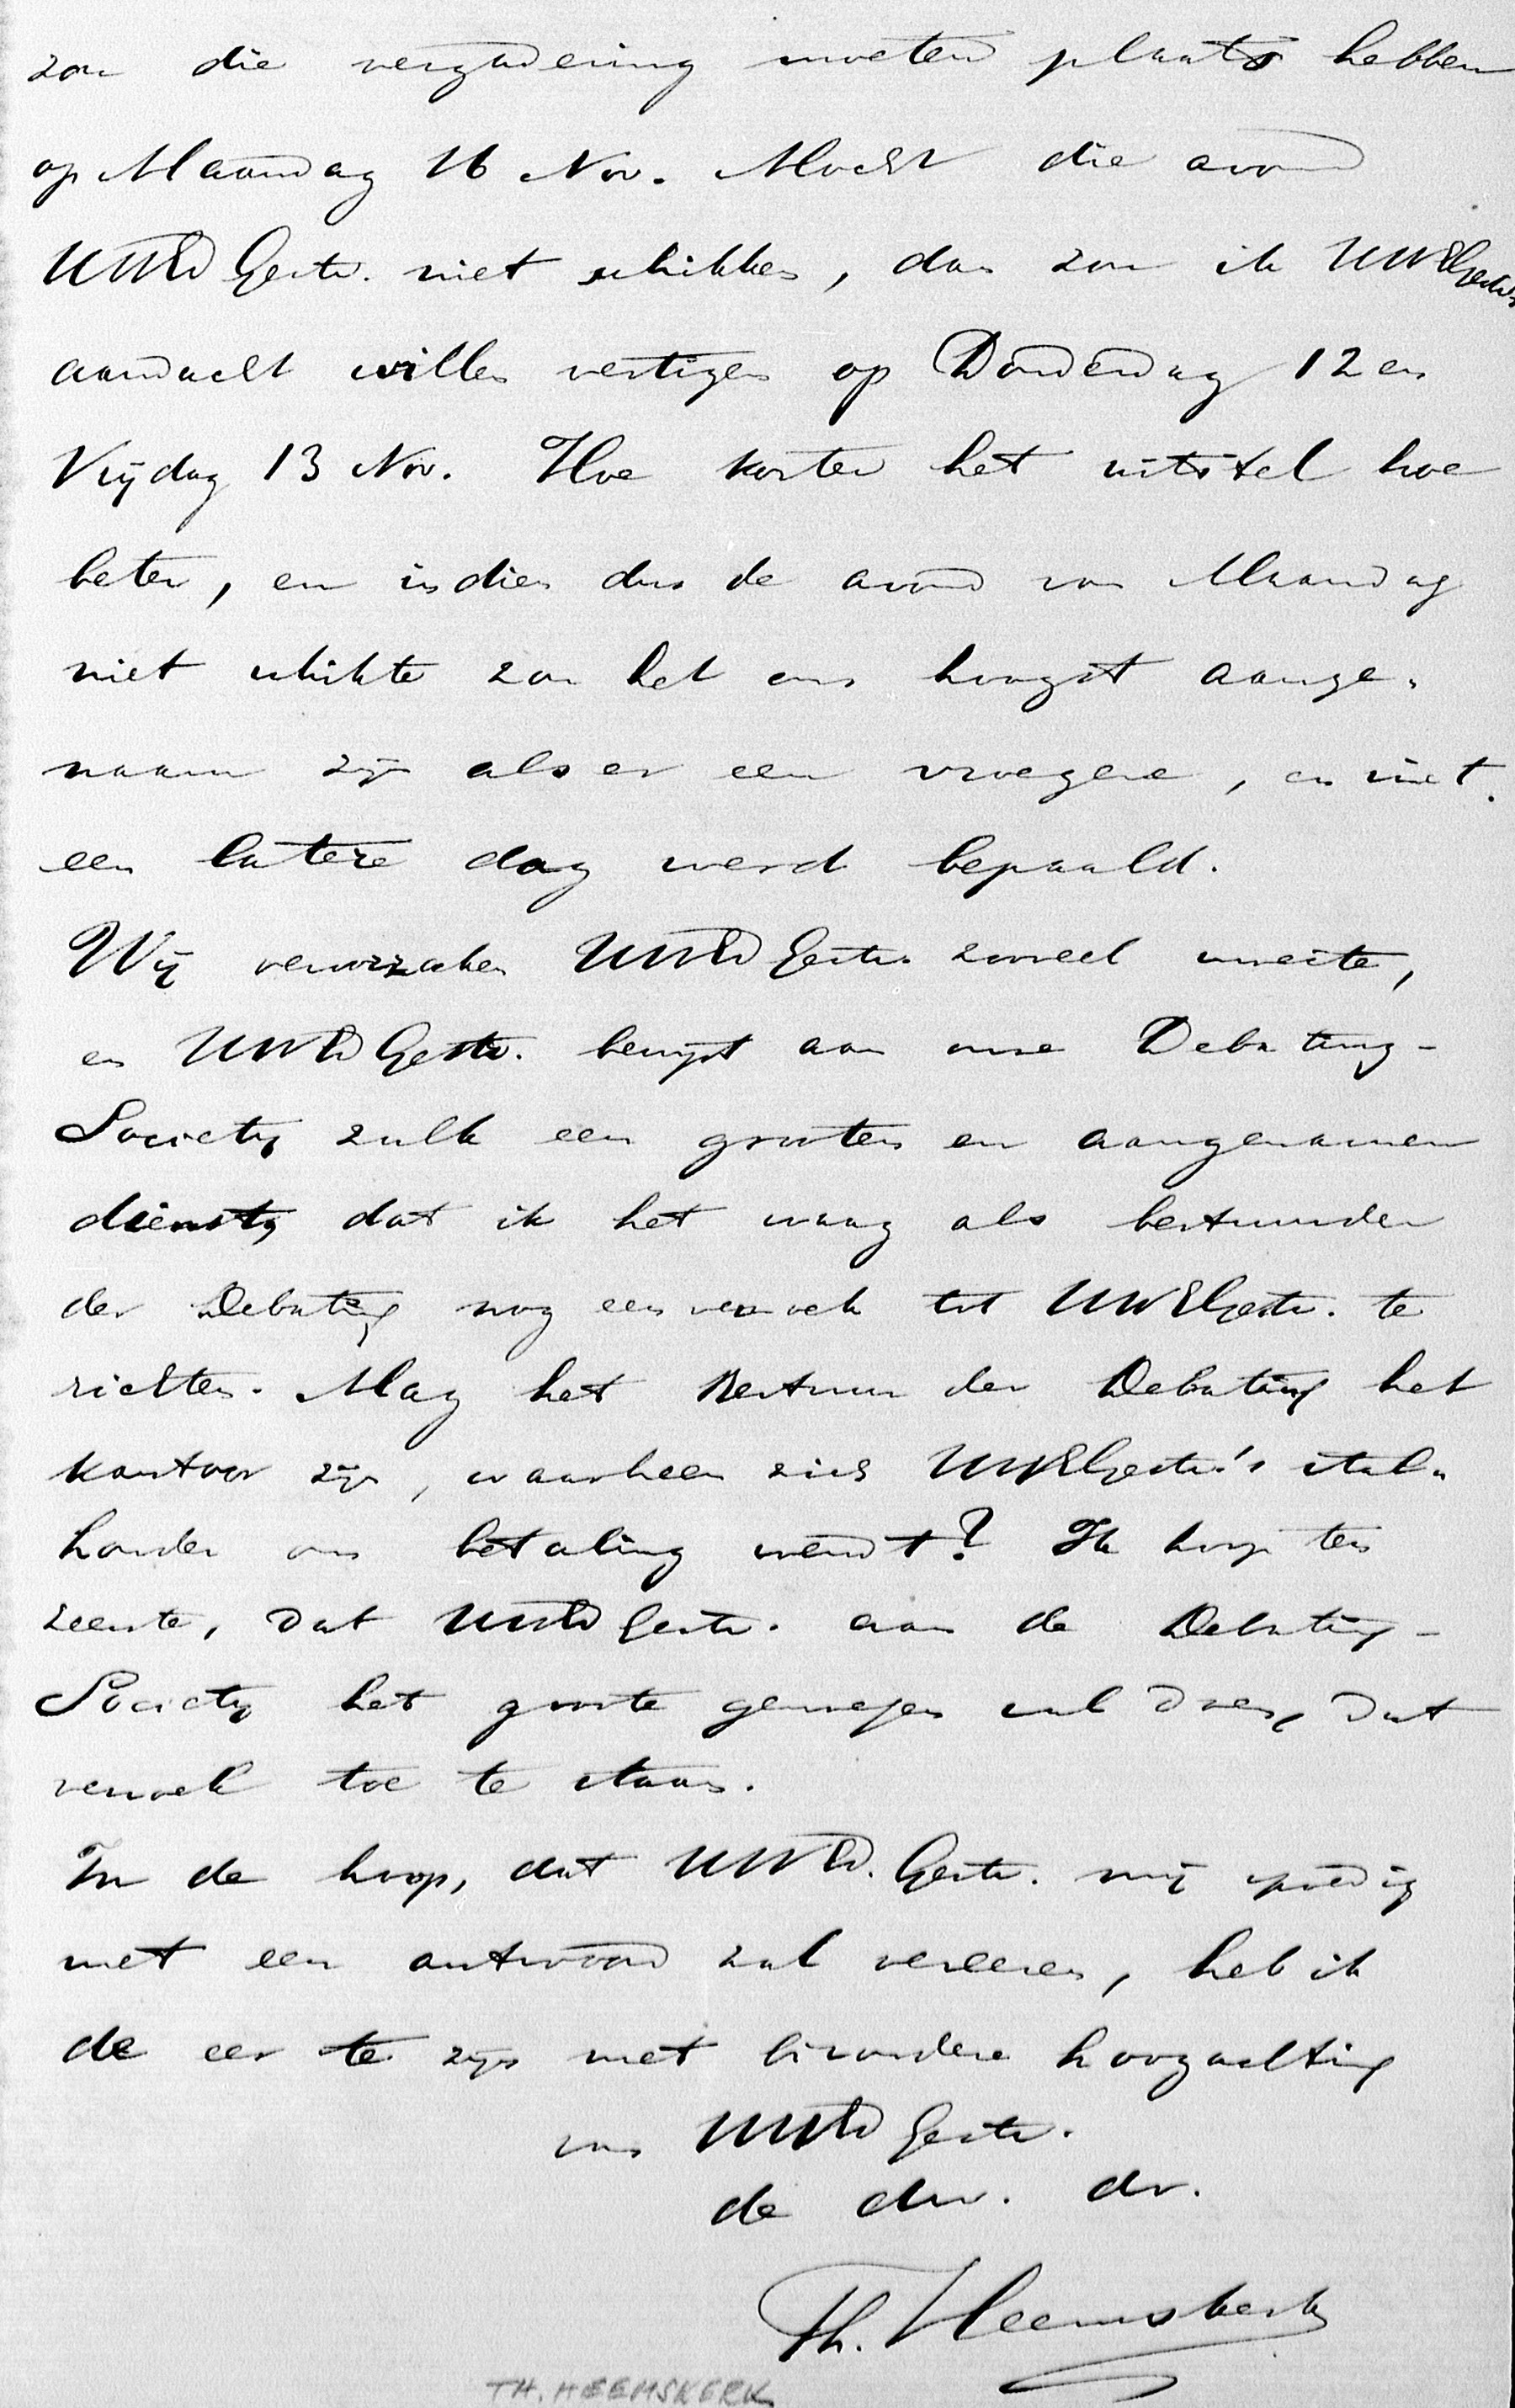 zou die vergadering moeten plaats hebben
op Maandag 16 Nov. Mocht die avond
UWEd Gestr. niet schikken, dan zou ik UWEd Gestr's
aandacht willen vestigen op Donderdag 12 en
Vrijdag 13 Nov. Hoe korter het uitstel hoe
beter, en indien dus de avond van Maandag
niet schikte zou het ons hoogst aange-
naam zijn als er een vroegere, en niet
een latere dag werd bepaald.
Wij veroorzaken UWEd Gestr. zooveel moeite,
en UWEd Gestr. bewijst aan onze Debating-
Society zulk een grooten en aangenamen
dienst, dat ik het waag als bestuurder
der Debating nog een verzoek tot UWEd Gestr. te
richten. Mag het Bestuur der Debating het
kantoor zijn, waarheen zich UWEd Gestr.'s stal-
houder om betaling wendt? Ik hoop ten
zeerste, dat UWEd Gestr. aan de Debating-
Society het groote genoegen zal doen, dat
verzoek toe te staan.
In de hoop, dat UWEd. Gestr. mij spoedig
met een antwoord zal vereeren, heb ik
de eer te zijn met bizondere hoogachting
van UWEd Gestr.
de dw. dr.
Th. Heemskerk
TH. HEEMSKERK